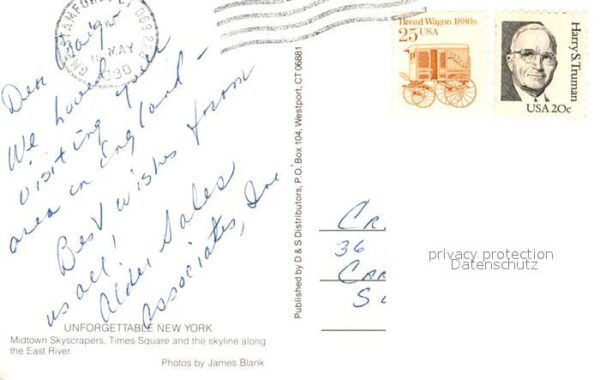 STAMFORD, CT 069
MAY
1990
Bread Wagon 1880s
25 USA
Harry S. Truman
USA 20c
Dear Craig
We loved
visiting your
area in England -
Best wishes from
us all!
Alder Sales
Associates, Inc.
Published by D & S Distributors, P.O. Box 104, Westport, CT 06881
CR
36
CAR
SU
privacy protection
Datenschutz
UNFORGETTABLE NEW YORK
Midtown Skyscrapers, Times Square and the skyline along
the East River.
Photos by James Blank